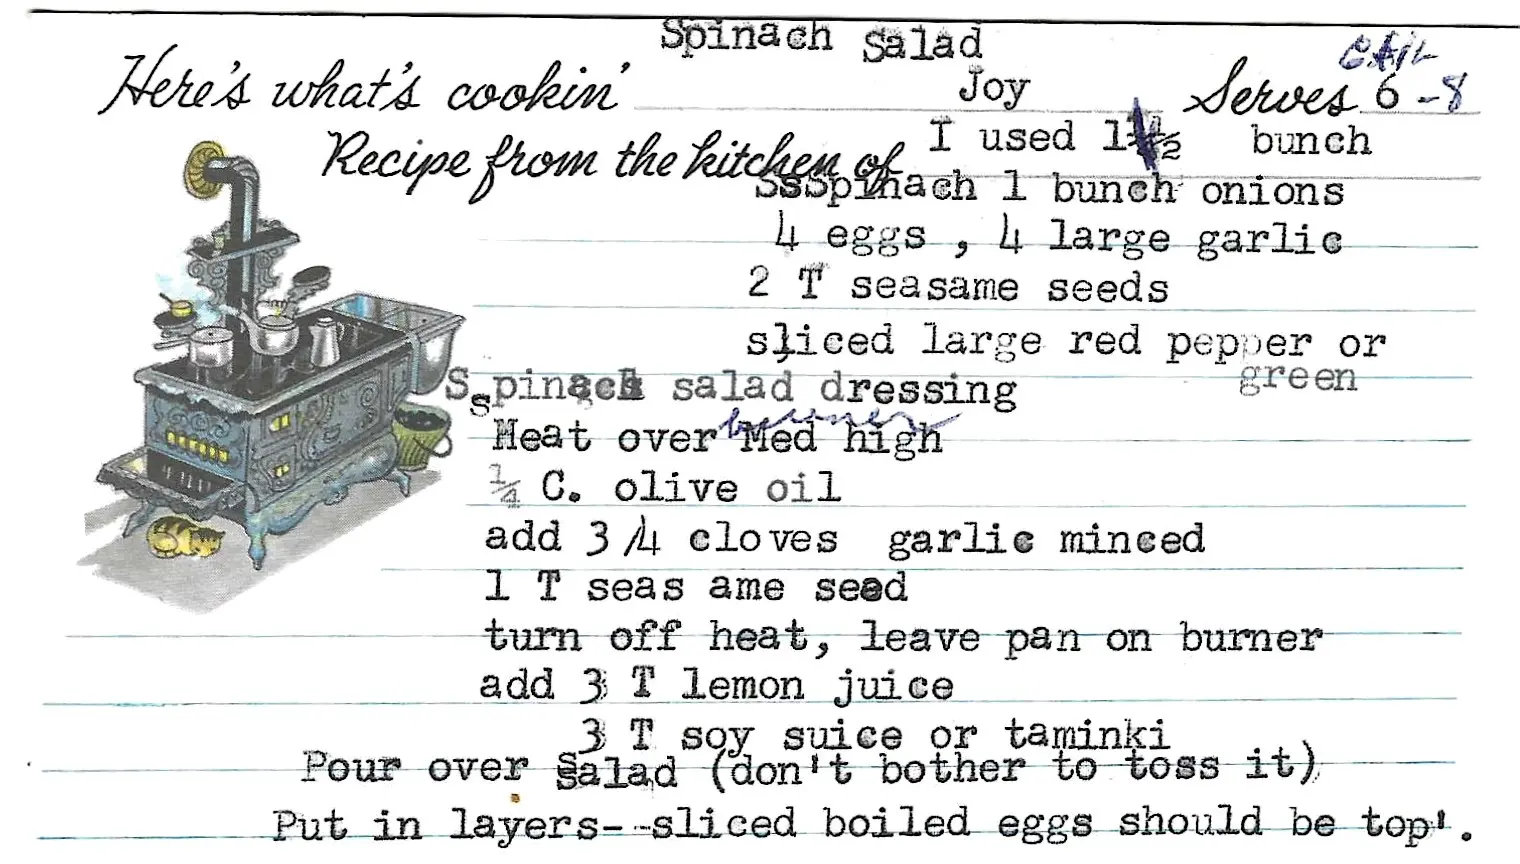 Spinach Salad
Here's what's cookin' Joy Serves 6 -8
GAIL
Recipe from the kitchen of I used 1 1/2 bunch
SsSpinach 1 bunch onions
4 eggs , 4 large garlic
2 T seasame seeds
sliced large red pepper or
green
Sspinach salad dressing
Heat over Med high
burner
¼ C. olive oil
add 3/4 cloves garlic minced
1 T seas ame seed
turn off heat, leave pan on burner
add 3 T lemon juice
3 T soy suice or taminki
Pour over salad (don't bother to toss it)
Put in layers--sliced boiled eggs should be top'.